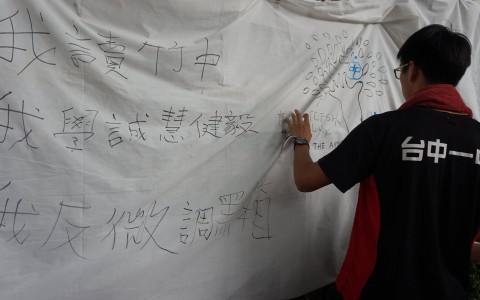 我讀竹中
我學誠慧健毅
我反微調黑箱
台中一中